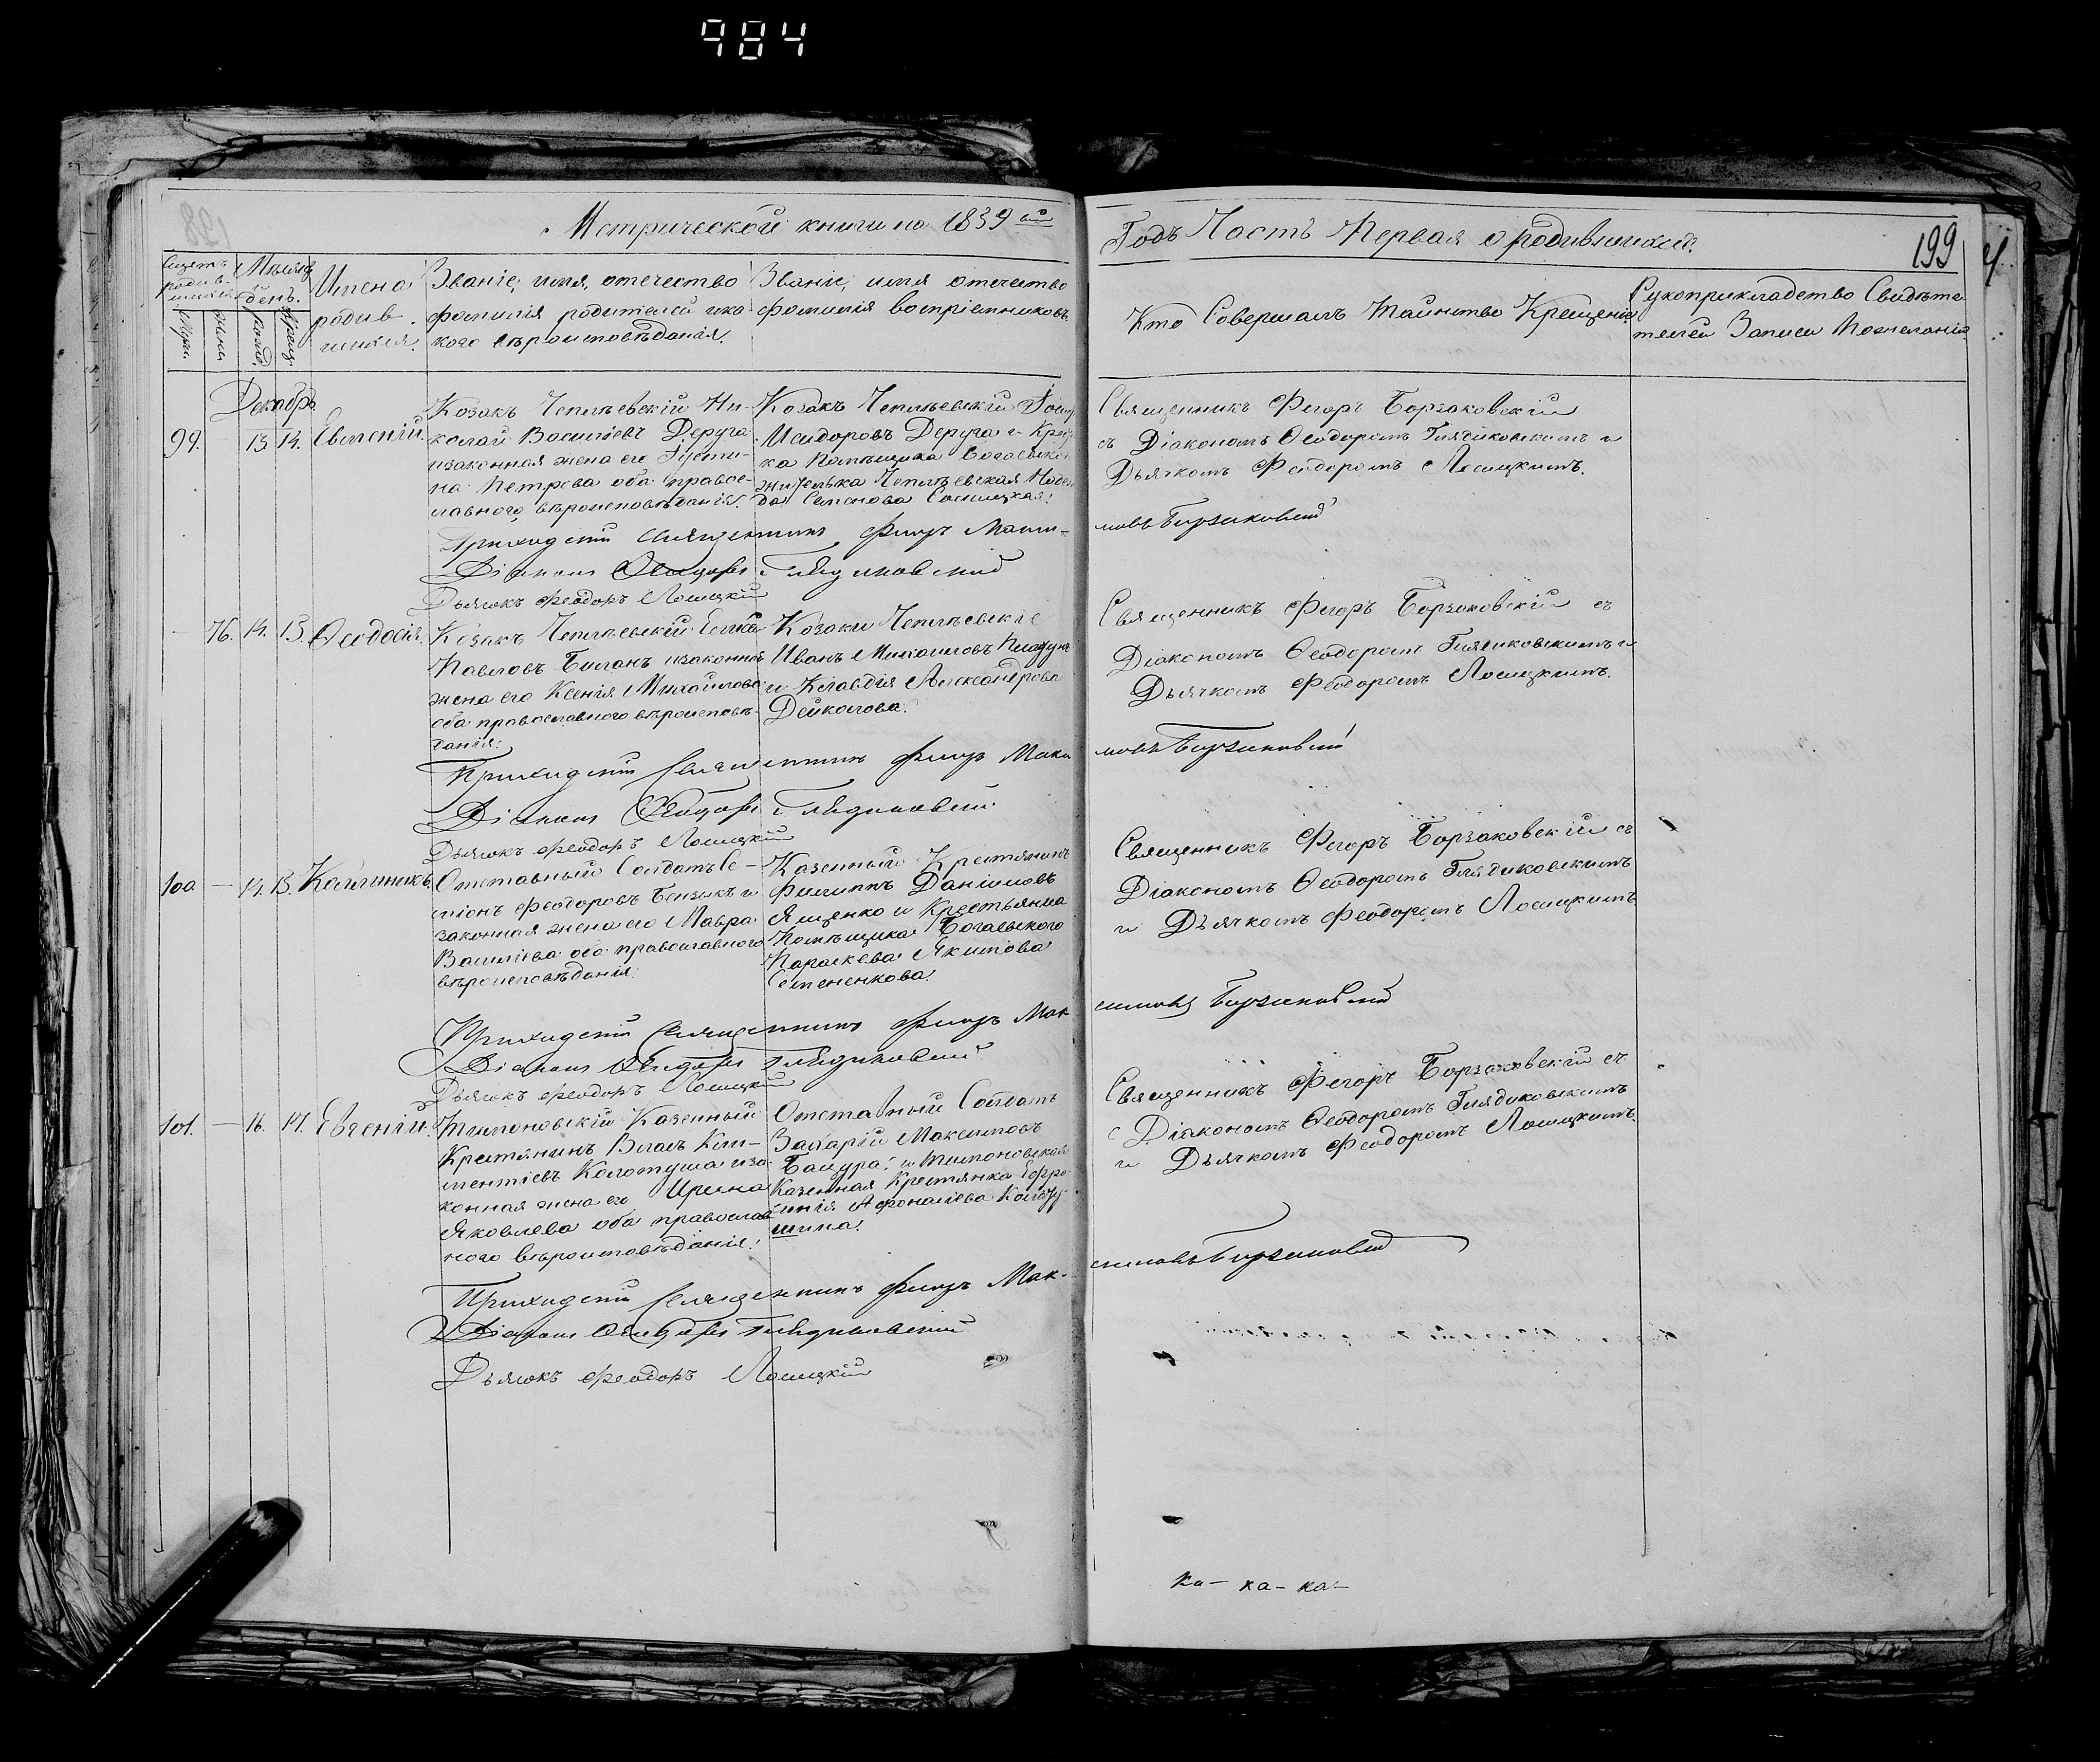 984
Метрической книги на 1839 ый
Годъ Часть Первая о родившихся.
199
Счетъ родив-шихся
Мужи.
жени
Месяцъ и день.
рожд.
Крещ.
Имена родив шихся.
Званіе, имя, отечество
фамилія родителей и ка
кого вѣроисповѣданія.
Званіе, имя отечество
фамилія воспріемниковъ.
Кто Совершалъ Таинство Крещенія
Рукоприкладство Свидѣте
телей Записи По желанію
Декабрь
99. 13. 14. Евгеній.
Козакъ Чепилѣевскій Ни-
колай Васильевъ Деруга
изаконная жена его Іусти-
на Петрова оба правос-
лавного вѣроисповѣданія.
Козакъ Чепилѣевскій
Исидоровъ Деруга и
ка Помѣщика Богаевско
жителька Чепилѣевская
да Семенова
Священникъ Фегоръ Борзаковскій
съ Діакономъ Ѳеодоромъ Гиядиковскимъ и
Дьячкомъ Феодоромъ Лосицкимъ.
Приходскій Священникъ Фегоръ Макси-
мовъ Борзаковскій
Діаконъ Ѳеодоръ Гиядиковскій
Дьячокъ Феодоръ Лосицкій
— 76. 14. 15. Ѳеодосія.
Козакъ Чепилѣевскій
Павловъ Биланъ изаконная
жена его Ксенія Михайлова
оба православного вѣроисповѣ-
данія.
Козаки Чепилѣевскіе
Иванъ Михаиловъ
и Клавдія Александрова
Дейкалова.
Священникъ Фегоръ Борзаковскій съ
Діакономъ Ѳеодоромъ Гиядиковскимъ и
Дьячкомъ Феодоромъ Лосицкимъ.
Приходскій Священникъ Фегоръ Макси
мовъ Борзаковскій
Діаконъ Ѳеодоръ Гиядиковскій
Дьячокъ Феодоръ Лосицкій
100 — 14. 15. Каллиникъ
Отставный Солдатъ Се-
міонъ Феодоровъ Бензикъ и
законная жена его Мавра
Василіева оба православного
вѣроисповѣданія.
Казенный Крестянинъ
Филиппъ Даніиловъ
Ященко и Крестьянка
Помѣщика Богаевского
Параскева Якимова
Семененкова.
Священникъ Фегоръ Борзаковскій съ
Діакономъ Ѳеодоромъ Гиядиковскимъ
и Дьячкомъ Феодоромъ Лосицкимъ
Приходскій Священникъ Фегоръ Мак
симовъ Борзаковскій
Діаконъ Ѳеодоръ Гиядиковскій
Дьячокъ Феодоръ Лосицкій
101. — 16. 17. Евгеній.
Тимоновскій Казенный
Крестянинъ Власъ Кли-
ментіевъ Колотуша иза
конная жена его Ирина
Яковлева оба православ
ного вѣроисповѣданія.
Отставный Солдатъ
Захарій Максимовъ
Бандура и Тимоновская
Казенная Крестянка Ефро
синія Афонасіева Колоту
шина.
Священникъ Фегоръ Борзаковскій съ
Діакономъ Ѳеодоромъ Гиядиковскимъ
и Дьячкомъ Феодоромъ Лосицкимъ.
Приходскій Священникъ Фегоръ Мак-
симовъ Борзаковскій
Діаконъ Ѳеодоръ Гиядиковскій
Дьячокъ Феодоръ Лосицкій
ка — ка — ка —